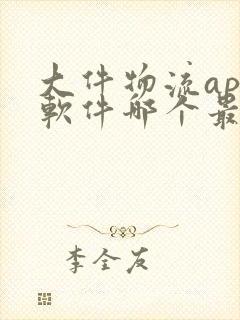 大件物流ap
软件哪个最
李全友